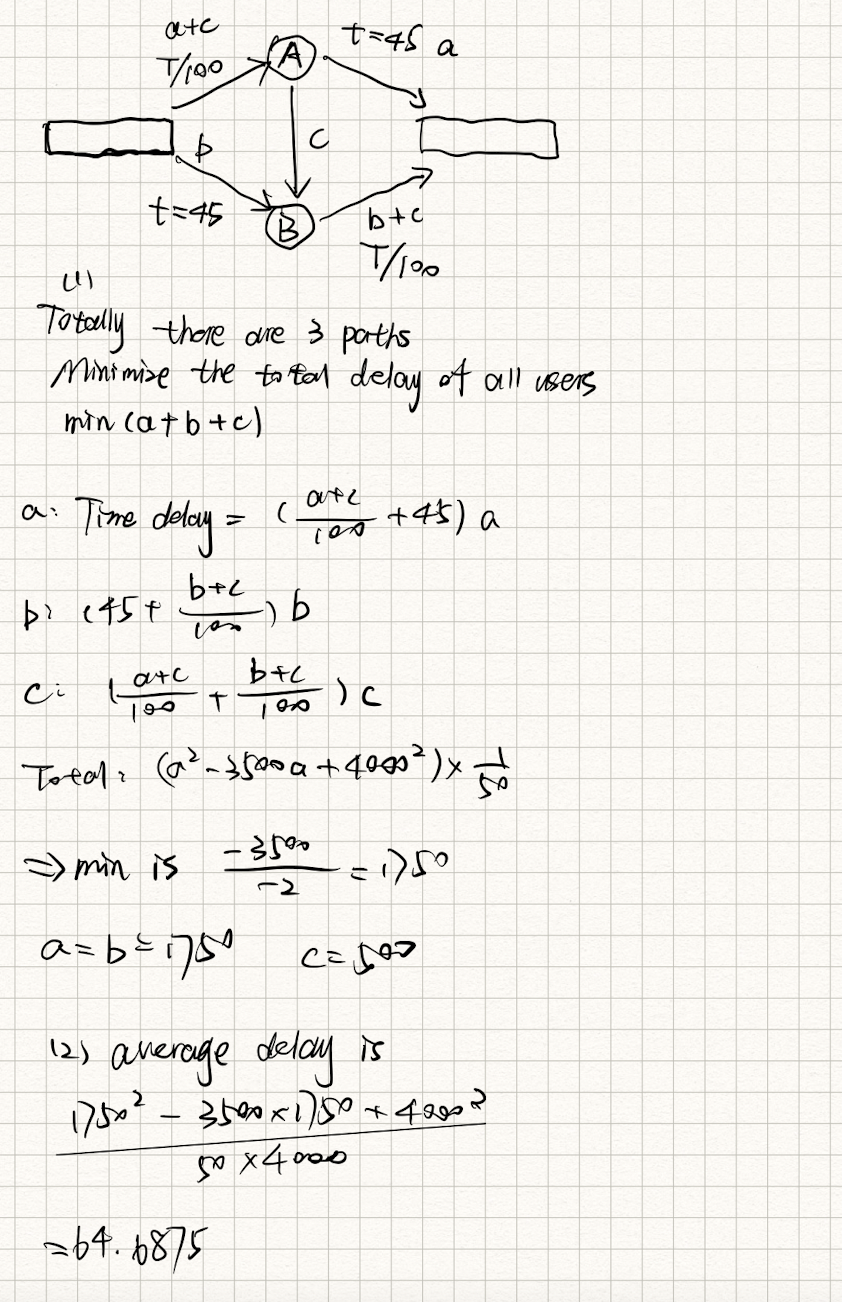 a+c
T/100
A
t=45 a
b
C
t=45
B
b+c
T/100
(1)
Totally there are 3 paths
Minimize the total delay of all users
min (a+b+c)
a: Time delay = (\frac{a+c}{100} + 45) a
b: (45 + \frac{b+c}{100}) b
C: (\frac{a+c}{100} + \frac{b+c}{100}) c
Total: (a² - 3500a + 4000²) × \frac{1}{50}
⇒ min is \frac{-3500}{-2} = 1750
a = b = 1750 c = 500
(2) average delay is
\frac{1750² - 3500×1750 + 4000²}{50 × 4000}
= 64.6875